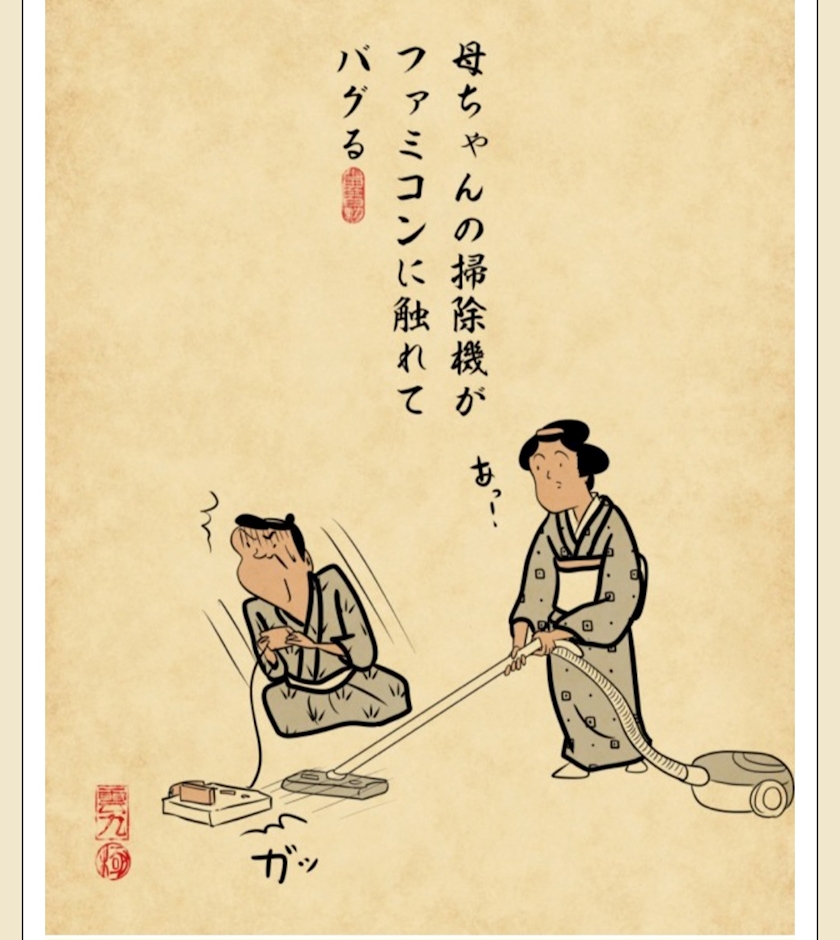 母ちゃんの掃除機が
ファミコンに触れて
バグる
あっ!
ガッ